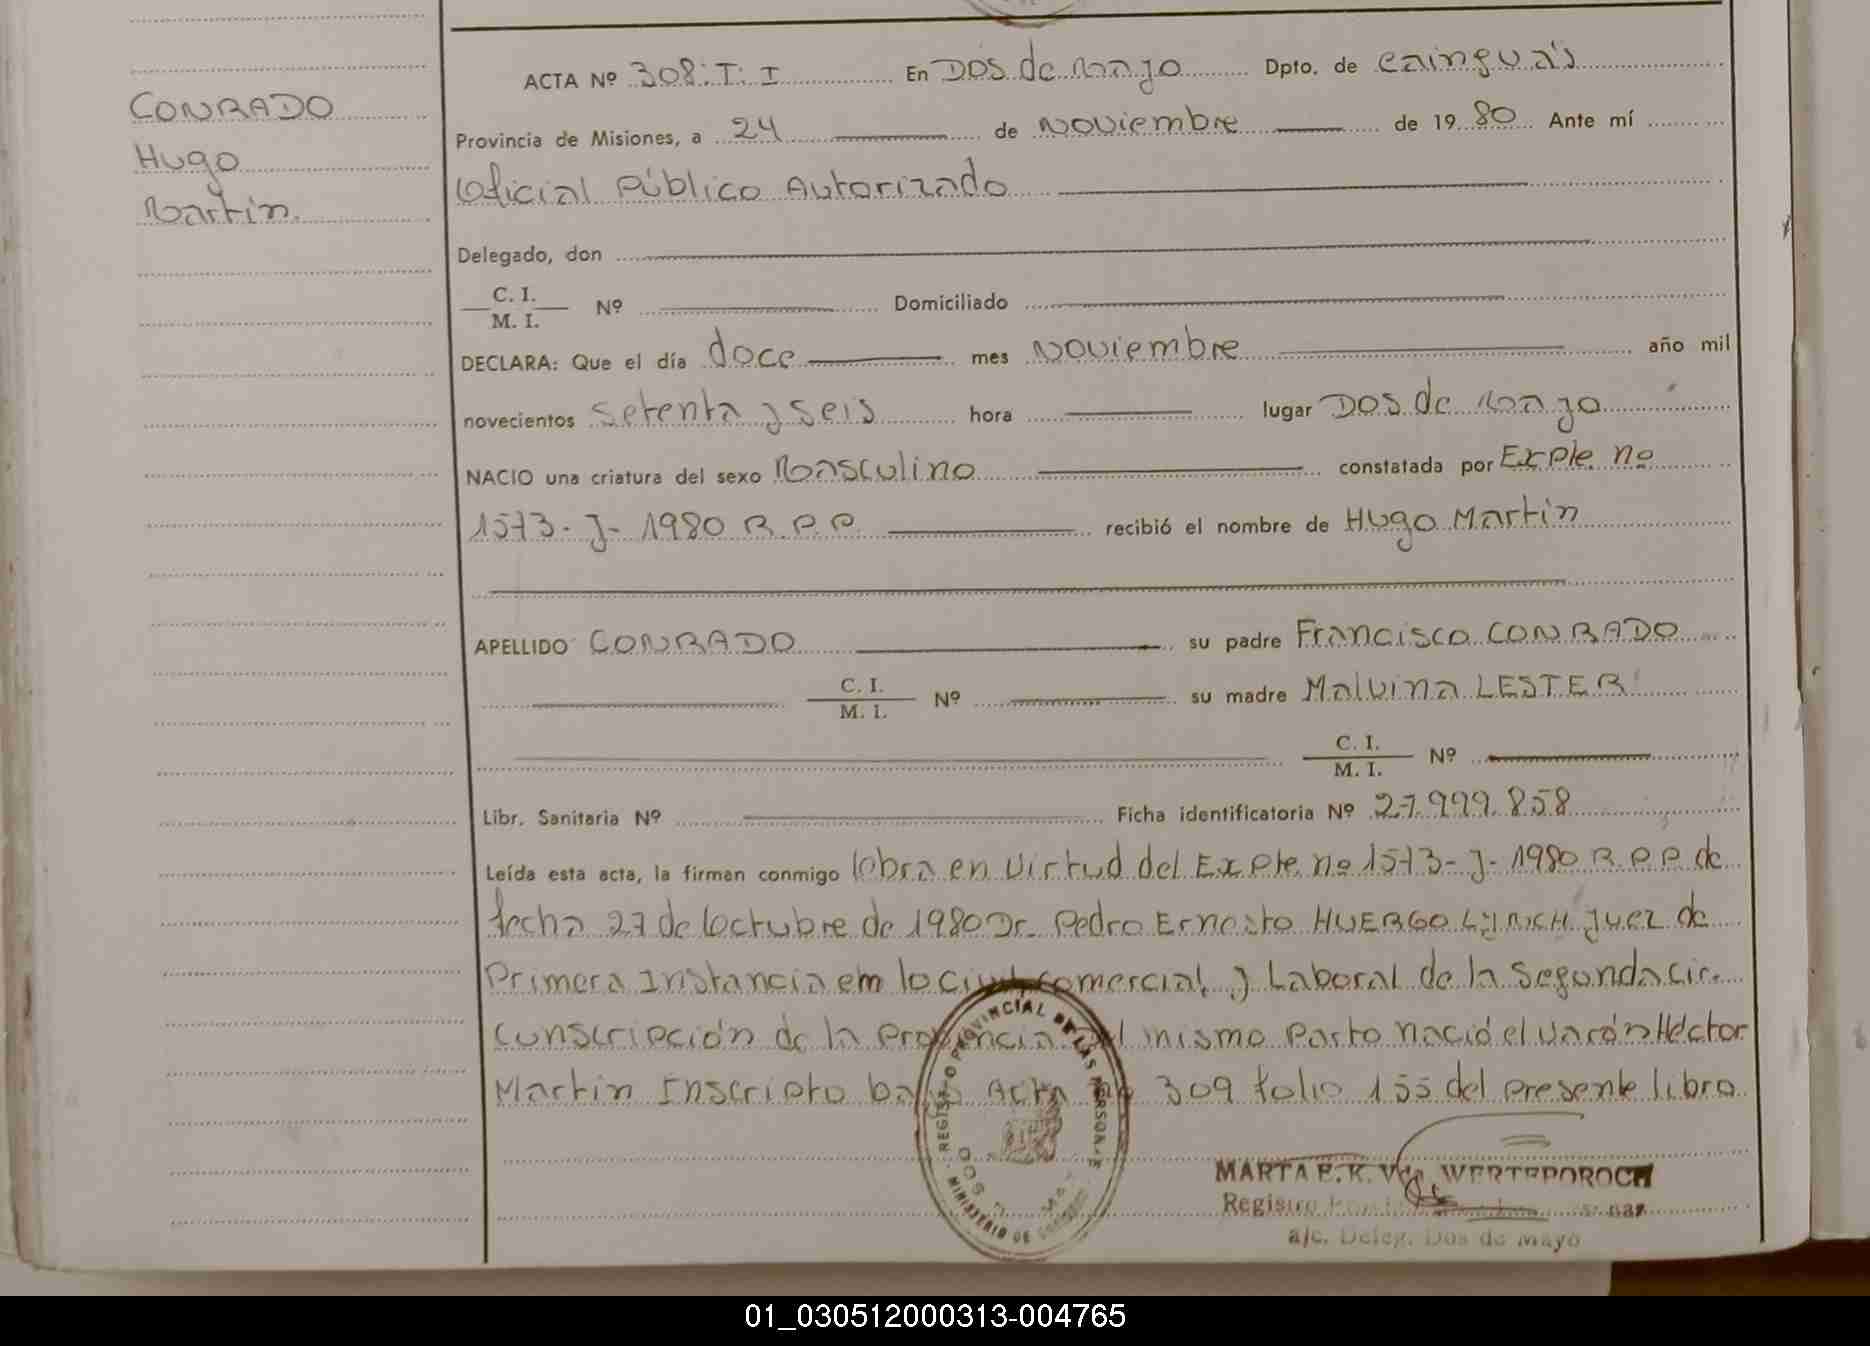 CONRADO
Hugo
Martin.
ACTA Nº 308: T: I En Dos de Mayo Dpto. de Cainguás
Provincia de Misiones, a 24 de Noviembre de 1980 Ante mí
Oficial Público Autorizado
Delegado, don
C. I.
M. I. Nº Domiciliado
DECLARA: Que el día doce mes Noviembre año mil
novecientos setenta y seis hora lugar Dos de Mayo
NACIO una criatura del sexo Masculino constatada por Expte. nº
1573-J-1980 R.P.P. recibió el nombre de Hugo Martin
APELLIDO CONRADO su padre Francisco CONRADO
C. I.
M. I. Nº su madre Malvina LESTER
C. I.
M. I. Nº
Libr. Sanitaria Nº Ficha identificatoria Nº 27.999.858
Leída esta acta, la firman conmigo lobra en virtud del Expte. nº 1573-J-1980 R.P.P. de
fecha 27 de octubre de 1980 Dr. Pedro Ernesto HUERGO LYNCH Juez de
Primera Instancia em lo Civil, comercial, y Laboral de la segunda Cir-
cunscripción de la Provincia del mismo parto nació el varón Héctor
Martin Inscripto bajo Acta nº 309 folio 155 del presente libro
REGISTRO PROVINCIAL DE LAS PERSONAS
MINISTERIO DE GOBIERNO
DOS DE MAYO
MARTA E. K. Vda. WERTEPOROCH
Registro
a/c. Deleg. Dos de Mayo
01_030512000313-004765